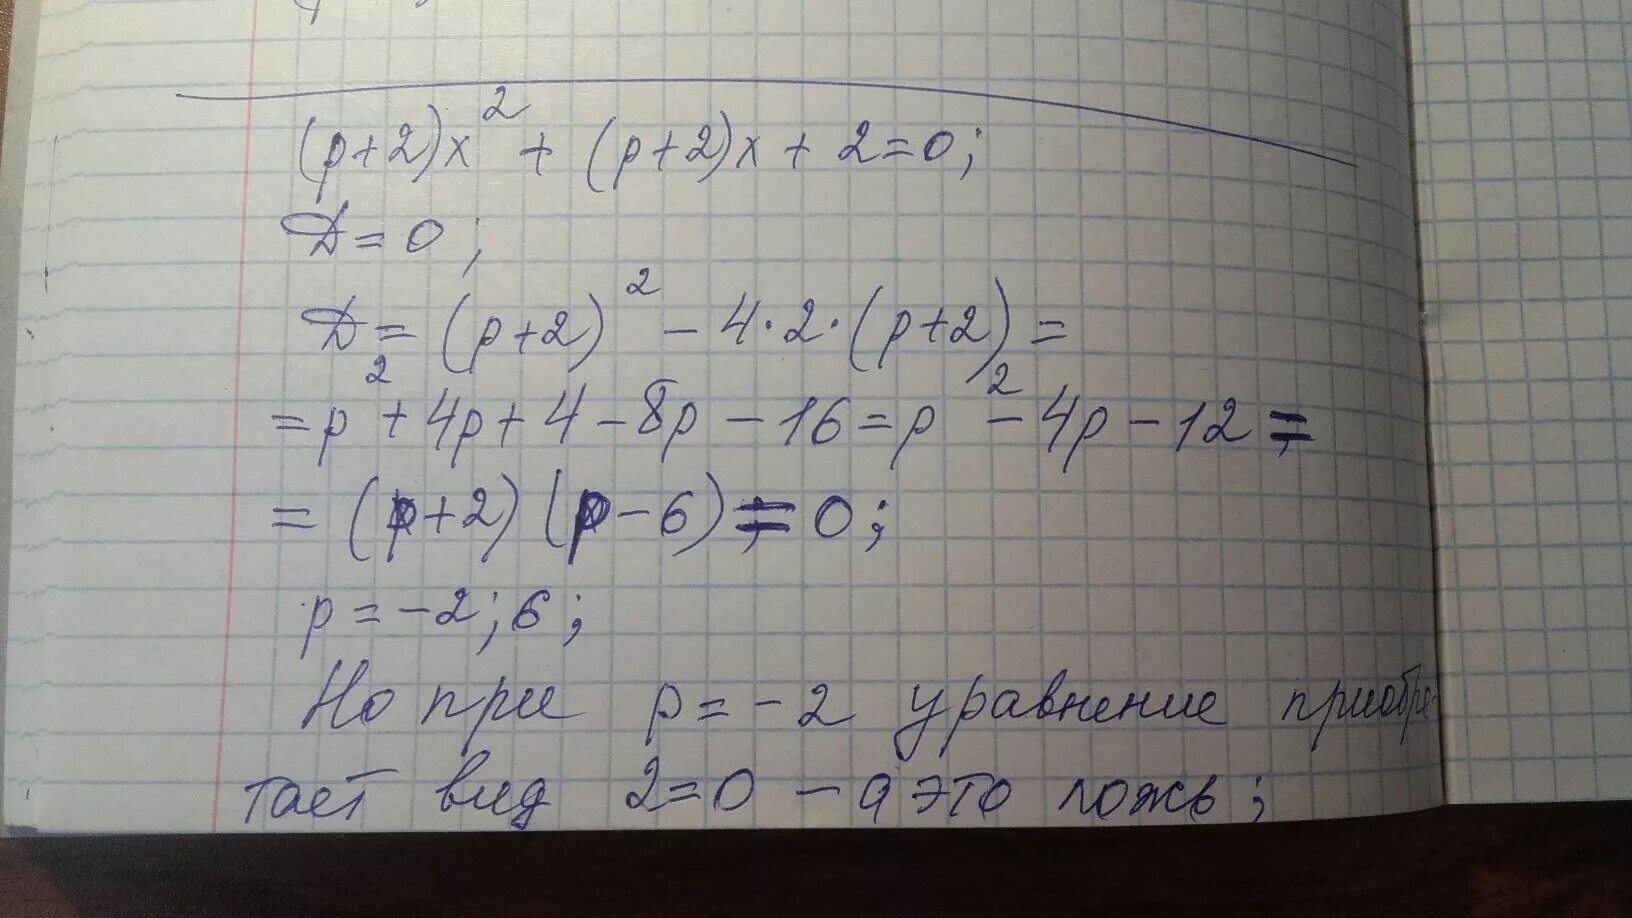 (p+2)x² + (p+2)x + 2=0;
D=0;
D=(p+2)² - 4·2·(p+2)=
=p²+4p+4-8p-16=p²-4p-12=
=(p+2)(p-6)=0;
p=-2;6;
Но при p=-2 уравнение приобре-
тает вид 2=0 - а это ложь;